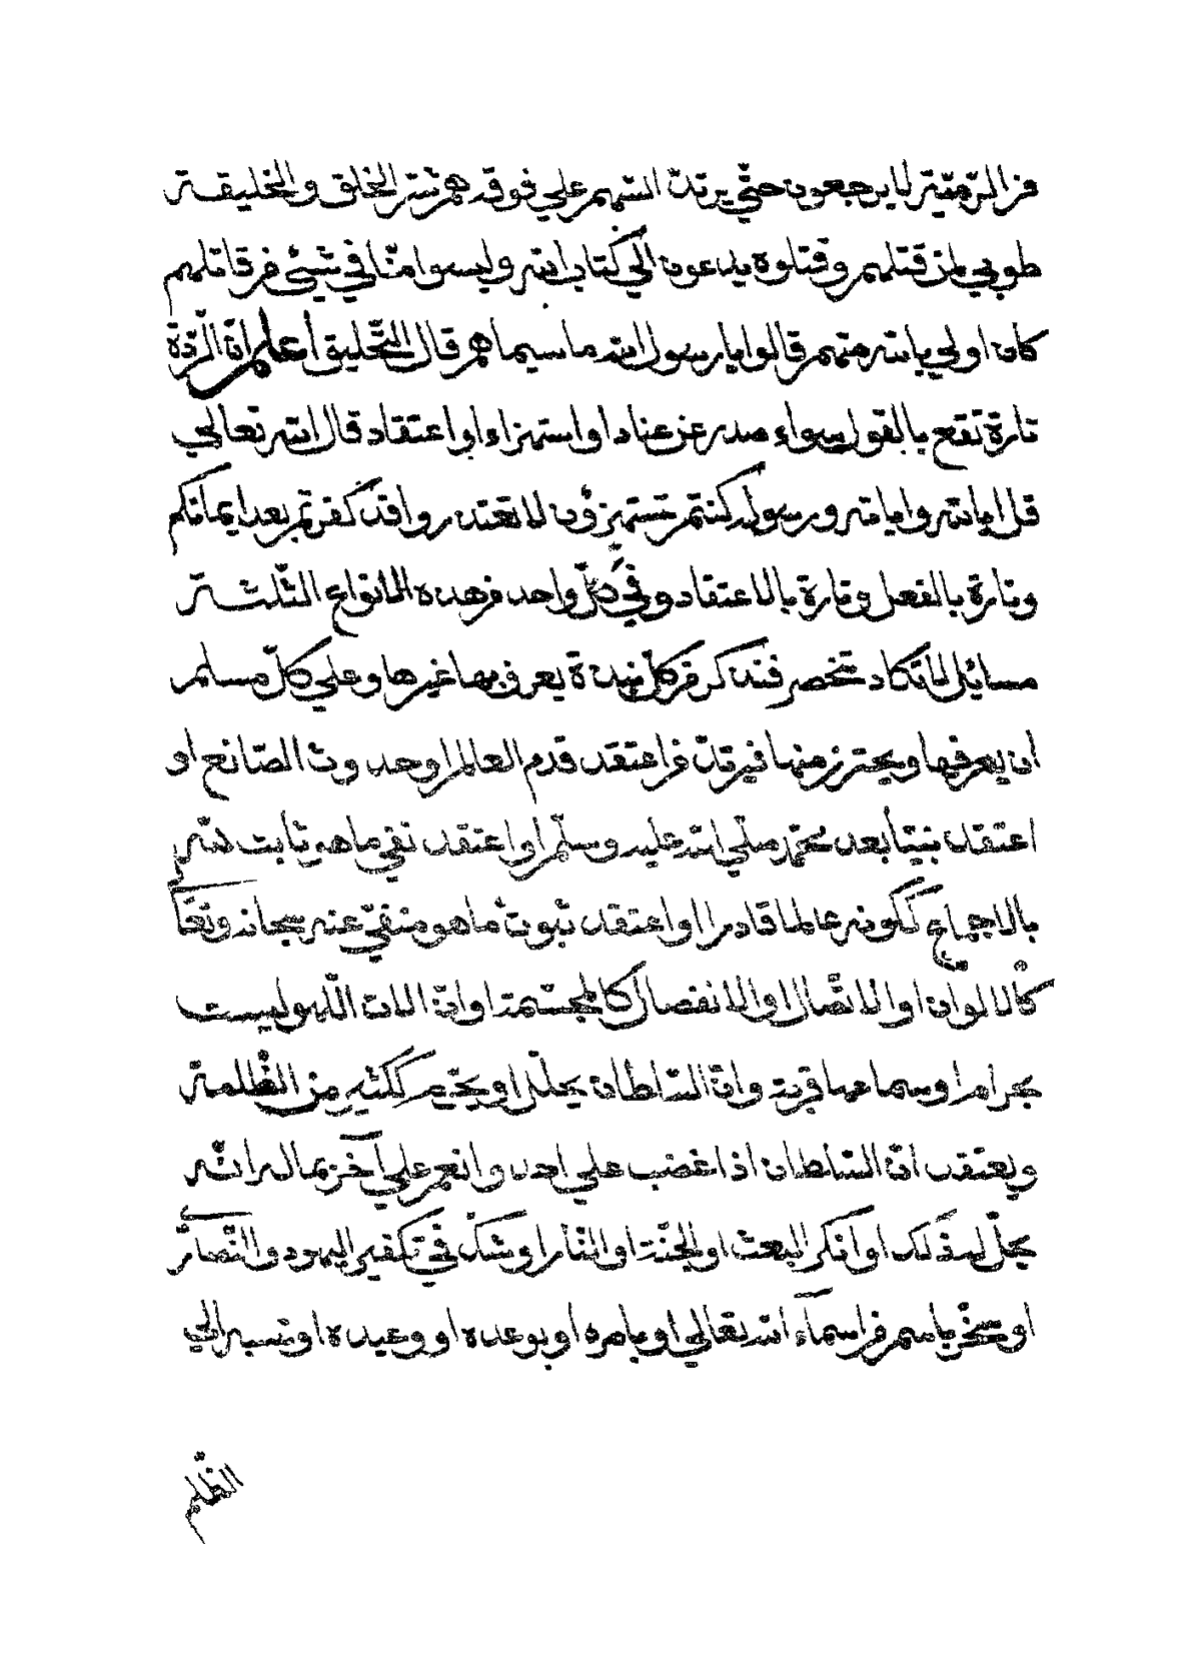 من الرّميّة لا يرجعون حتّي يرتدّ السّهم علي فوقه هم شرّ الخلق والخليقة
طوبي لمن قتلهم وقتلوه يدعون الي كتاب الله وليسوا منّا في شيئ من قاتلهم
كان اولي بالله منهم قالوا يا رسول الله ما سيماهم قال التّحليق أعلم انّ الرّدّة
تارة تقع بالقول سواء صدر عن عناد او استهزاء او اعتقاد قال الله تعالي
قل ابالله واياته ورسوله كنتم تستهزؤن لا تعتذروا قد كفرتم بعد ايمانكم
وتارة بالفعل وتارة بالاعتقاد وفي كلّ واحد من هذه الانواع الثّلثة
مسائل لا تكاد تنحصر فنذكر من كلّ نبذة يعرف بها غيرها وعلي كلّ مسلم
ان يعرفها ويحترز منها فيرتدّ من اعتقد قدم العالم او حدوث الصّانع او
اعتقد نبيّا بعد محمّد صلّي الله عليه وسلّم او اعتقد نفي ما هو ثابت لله
بالاجماع ككونه عالما قادرا او اعتقد ثبوت ما هو منفيّ عنه سبحانه وتعا
كالالوان او الاتّصال او الانفصال كالمجسّمة او انّ الات اللّهو ليست
بحرام او سماعها قربة وانّ السّلطان يحلّل او يحرّم ككثير من الظّلمة
ويعتقد انّ السّلطان اذا غضب علي احد وانعم علي آخر بماله انّه
يحلّ له ذلك او انكر البعث او الجنّة او النّار او شكّ في تكفير اليهود والنّصاري
او سخر باسم من اسماء الله تعالي او بامره او بوعده او وعيده او نسبه الي
الظّلم